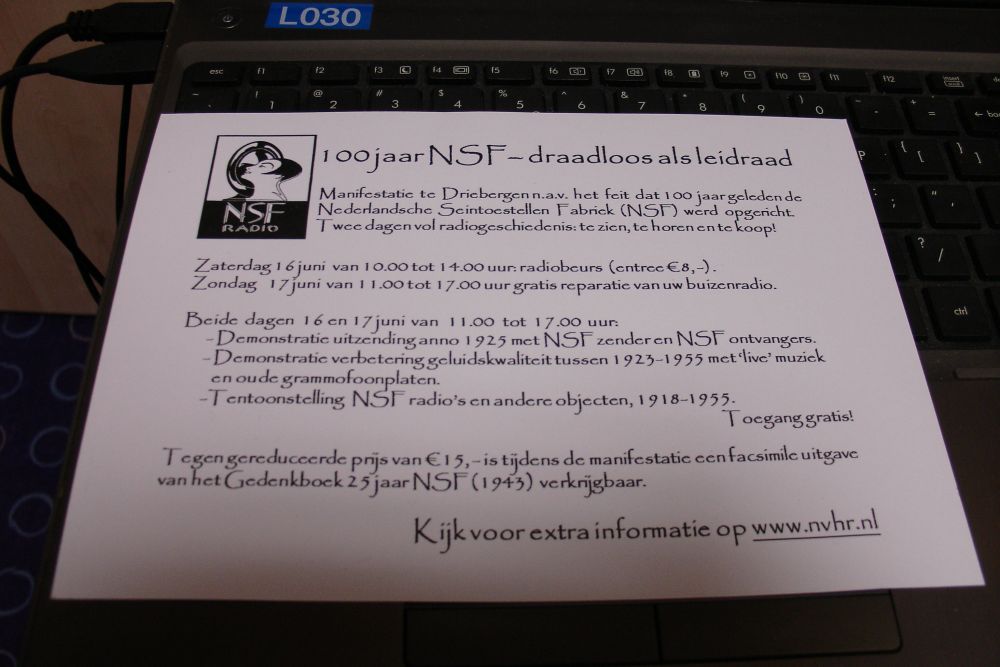 L030
esc f1 f2 f3 f4 f5 f6 f7 f8 f9 f10 f11 f12 insert
~ ! @ # $ % ^ & * ( ) - +
1 2 3 4 5 6 7 8 9 0 - =
P { }
[ ]
: "
; '
?
/
ctrl
NSF
RADIO
100 jaar NSF – draadloos als leidraad
Manifestatie te Driebergen n.a.v. het feit dat 100 jaar geleden de
Nederlandsche Seintoestellen Fabriek (NSF) werd opgericht.
Twee dagen vol radiogeschiedenis: te zien, te horen en te koop!
Zaterdag 16 juni van 10.00 tot 14.00 uur: radiobeurs (entree €8,-).
Zondag 17 juni van 11.00 tot 17.00 uur gratis reparatie van uw buizenradio.
Beide dagen 16 en 17 juni van 11.00 tot 17.00 uur:
- Demonstratie uitzending anno 1925 met NSF zender en NSF ontvangers.
- Demonstratie verbetering geluidskwaliteit tussen 1923-1955 met 'live' muziek
en oude grammofoonplaten.
- Tentoonstelling NSF radio's en andere objecten, 1918-1955.
Toegang gratis!
Tegen gereduceerde prijs van €15,- is tijdens de manifestatie een facsimile uitgave
van het Gedenkboek 25 jaar NSF (1943) verkrijgbaar.
Kijk voor extra informatie op www.nvhr.nl